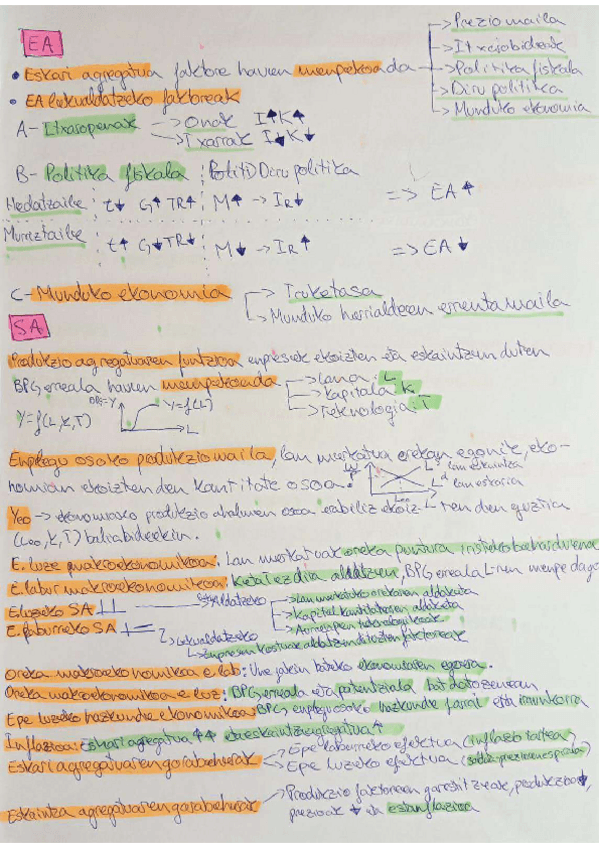 EA
→ Prezio maila
→ Itxarobideak
• Eskari agregatua faktore hauen menpekoa da → Politika fiskala
→ Diru politika
→ Munduko ekonomia
• EA lekualdatzeko faktoreak
A- Itxaropenak → Onak I↑ K↑
→ Txarrak I↓ K↓
B- Politika fiskala Diru politika
Hedatzaile t↓ G↑ TR↑ M↑ → IR↓ => EA↑
Murriztaile t↑ G↓ TR↓ M↓ → IR↑ => EA↓
C- Munduko ekonomia → Truketasa
→ Munduko herrialdeen errenta maila
SA
Produkzio agregatuaren funtzioa enpresek ekoizten eta eskaintzen duten
BPG erreala hauen menpekoa da → Lana: L
→ Kapitala: K
→ Teknologia: T
Y=f(L,K,T) BPG=Y Y=f(L) L
Enplegu osoko produkzio maila, lan merkatua orekan egonik, eko-
nomian ekoizten den kantitate osoa. Ls lan eskaintza
Ld lan eskaria
Leo
Yeo → ekonomiako produkzio ahalmen osoa erabiliz ekoiz-ten den guztia
(Leo, K, T) baliabideekin.
E. luze makroekonomikoa: Lan merkatuak oreka puntura iristeko behar duena
E. labur makroekonomikoa: K eta T ez dira aldatzen, BPG erreala L-ren menpe dago
E. luzeko SA → Lan merkatuko orekaren aldaketa
E. laburreko SA → Kapital kantitatearen aldaketa
→ Aurrerapen teknologikoak
→ Lekualdatzeko
→ Enpresen kostuak aldatzen dituzten faktoreak
Oreka makroekonomikoa e. lab: Une jakin bateko ekonomiaren egoera.
Oreka makroekonomikoa e. luz: BPG erreala eta potentziala bat datozenean
Epe luzeko hazkunde ekonomikoa: BPG enplegu osoko hazkunde jarrai eta iraunkorra
Inflazioa: Eskari agregatua ↑↑ eta eskaintza agregatua ↑
Eskari agregatuaren gorabeherak → Epe laburreko efektua (inflazio tartea)
→ Epe luzeko efektua (
Eskaintza agregatuaren gorabeherak → Produkzio faktoreen garestitzeak, produkzioa↓,
prezioak ↑ eta estanflazioa